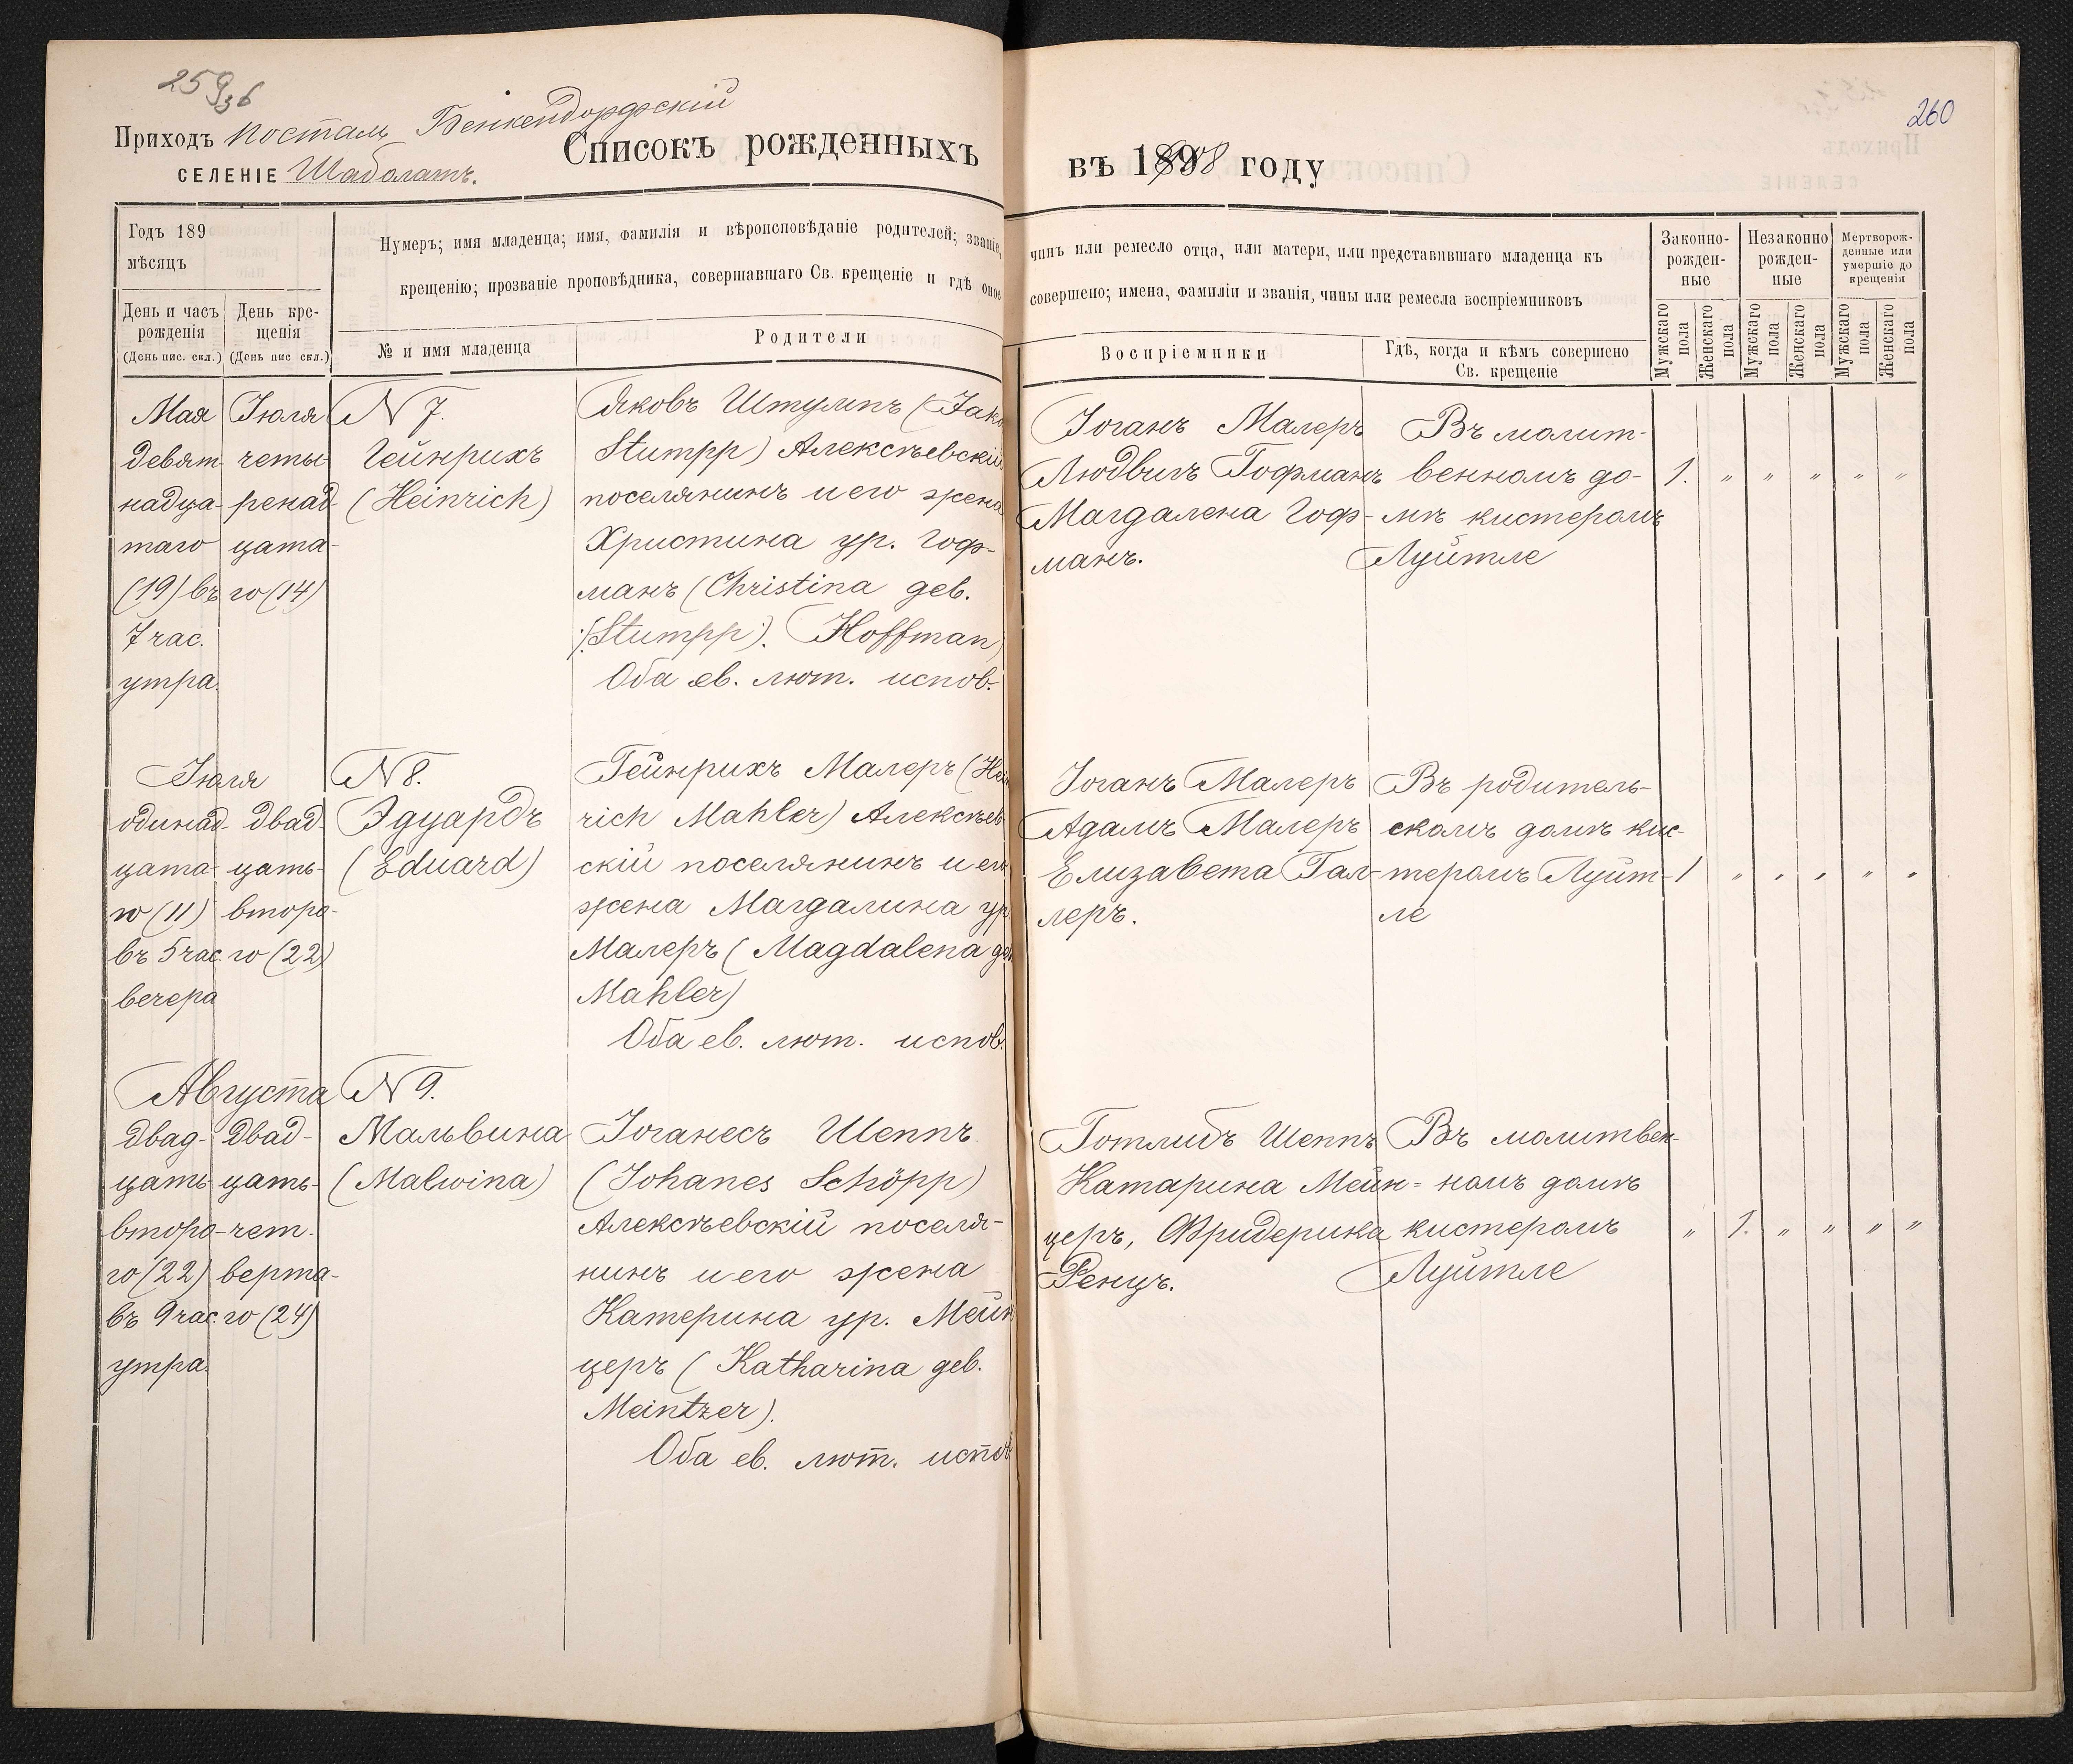 259
260
Приходъ Постали Бенкендорфскій
селеніе Шаболатъ.
Списокъ рожденныхъ
въ 1898 году
Годъ 189
мѣсяцъ
День и часъ рожденія
(День пис. скл.)
День кре-
щенія
(День пис скл.)
Нумеръ; имя младенца; имя, фамилія и вѣроисповѣданіе родителей; званіе,
крещенію; прозваніе проповѣдника, совершавшаго Св. крещеніе и гдѣ оное
№ и имя младенца
Родители
чинъ или ремесло отца, или матери, или представившаго младенца къ
совершено; имена, фамиліи и званія, чины или ремесла воспріемниковъ
Воспріемники
Гдѣ, когда и кѣмъ совершено
Св. крещеніе
Законно-
рожден-
ные
Незаконно
рожден-
ные
Мертворож-
денные или
умершіе до
крещенія
Мужскаго пола
Женскаго пола
Мужскаго пола
Женскаго пола
Мужскаго пола
Женскаго пола
Мая
девят-
надца-
таго
(19) въ
7 час.
утра.
Іюля
четы-
ренад-
цата-
го (14)
N 7.
Гейнрихъ
(Heinrich)
Яковъ Штумпъ (Jako
Stumpp) Алексѣевскій
поселянинъ и его жена
Христина ур. Гоф-
манъ (Christina geb.
(Stumpp). Hoffman)
Оба ев. лют. испов.
Іоганъ Малеръ
Людвигъ Гофманъ
Магдалена Гоф-
манъ.
Въ молит-
венномъ до-
мѣ кистеромъ
Луйтле
1. " " " " "
Іюля
одинад-
цата-
го (11)
въ 5 час.
вечера
двад-
цать-
второ-
го (22)
N 8.
Эдуардъ
(Eduard)
Гейнрихъ Малеръ (Hein
rich Mahler) Алексѣев
скій поселянинъ и его
жена Магдалина ур.
Малеръ (Magdalena geb
Mahler)
Оба ев. лют. испов.
Іоганъ Малеръ
Адамъ Малеръ
Елизавета Гал-
леръ.
Въ родитель-
скомъ домѣ кис-
теромъ Луйт-
ле
1 " " " " "
Августа
двад-
цать
второ-
го (22)
въ 9 час.
утра.
двад-
цать-
чет-
верта-
го (24)
N 9.
Мальвина
(Malwina)
Іоганесъ Шеппъ
(Johanes Schöpp)
Алексѣевскій поселя-
нинъ и его жена
Катерина ур. Мейн
церъ (Katharina geb.
Meintzer).
Оба ев. лют. испов
Готлибъ Шеппъ
Катарина Мейн=
церъ, Фридерика
Ренцъ.
Въ молитвен-
номъ домѣ
кистеромъ
Луйтле
" 1. " " " "